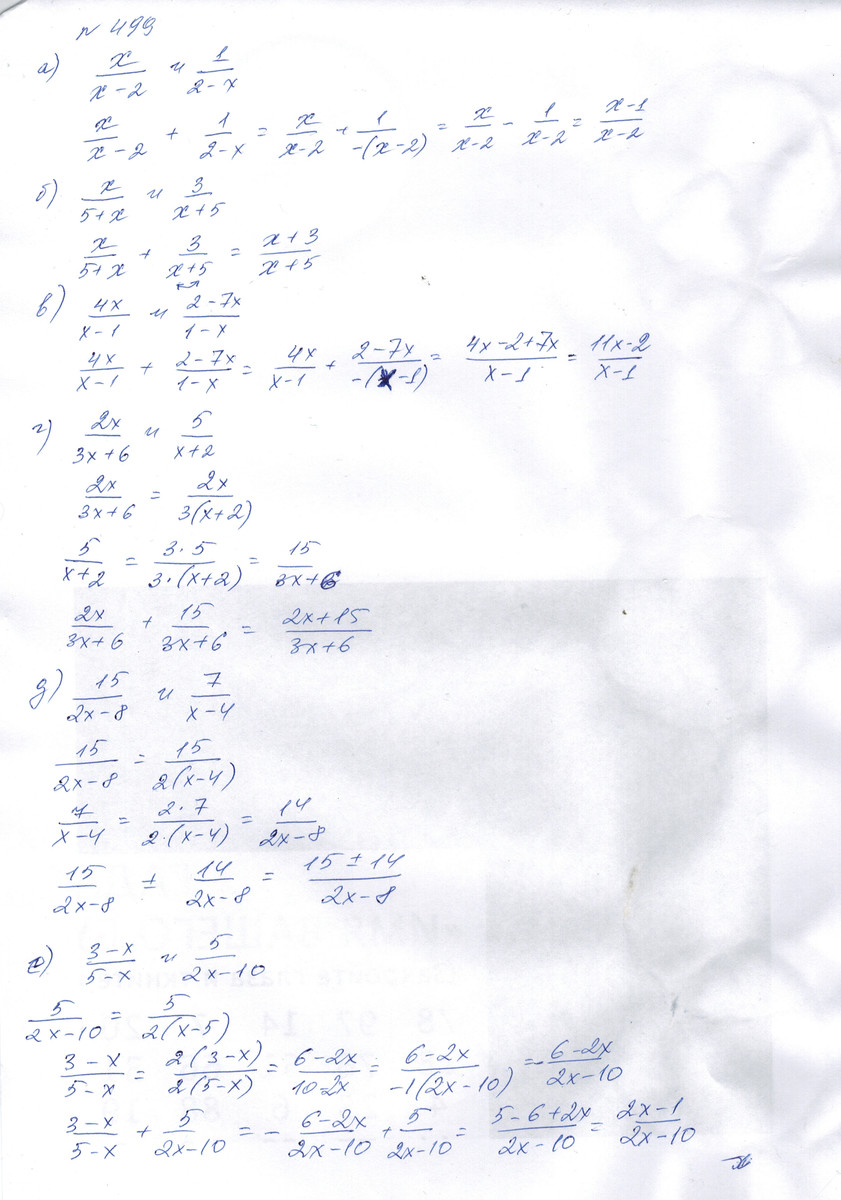 № 499
а) x/(x-2) и 1/(2-x)
x/(x-2) + 1/(2-x) = x/(x-2) + 1/(-(x-2)) = x/(x-2) - 1/(x-2) = (x-1)/(x-2)
б) x/(5+x) и 3/(x+5)
x/(5+x) + 3/(x+5) = (x+3)/(x+5)
в) 4x/(x-1) и (2-7x)/(1-x)
4x/(x-1) + (2-7x)/(1-x) = 4x/(x-1) + (2-7x)/(-(x-1)) = (4x-2+7x)/(x-1) = (11x-2)/(x-1)
г) 2x/(3x+6) и 5/(x+2)
2x/(3x+6) = 2x/(3(x+2))
5/(x+2) = (3·5)/(3·(x+2)) = 15/(3x+6)
2x/(3x+6) + 15/(3x+6) = (2x+15)/(3x+6)
д) 15/(2x-8) и 7/(x-4)
15/(2x-8) = 15/(2(x-4))
7/(x-4) = (2·7)/(2·(x-4)) = 14/(2x-8)
15/(2x-8) ± 14/(2x-8) = (15±14)/(2x-8)
е) (3-x)/(5-x) и 5/(2x-10)
5/(2x-10) = 5/(2(x-5))
(3-x)/(5-x) = (2(3-x))/(2(5-x)) = (6-2x)/(10-2x) = (6-2x)/(-1(2x-10)) = -(6-2x)/(2x-10)
(3-x)/(5-x) + 5/(2x-10) = -(6-2x)/(2x-10) + 5/(2x-10) = (5-6+2x)/(2x-10) = (2x-1)/(2x-10)